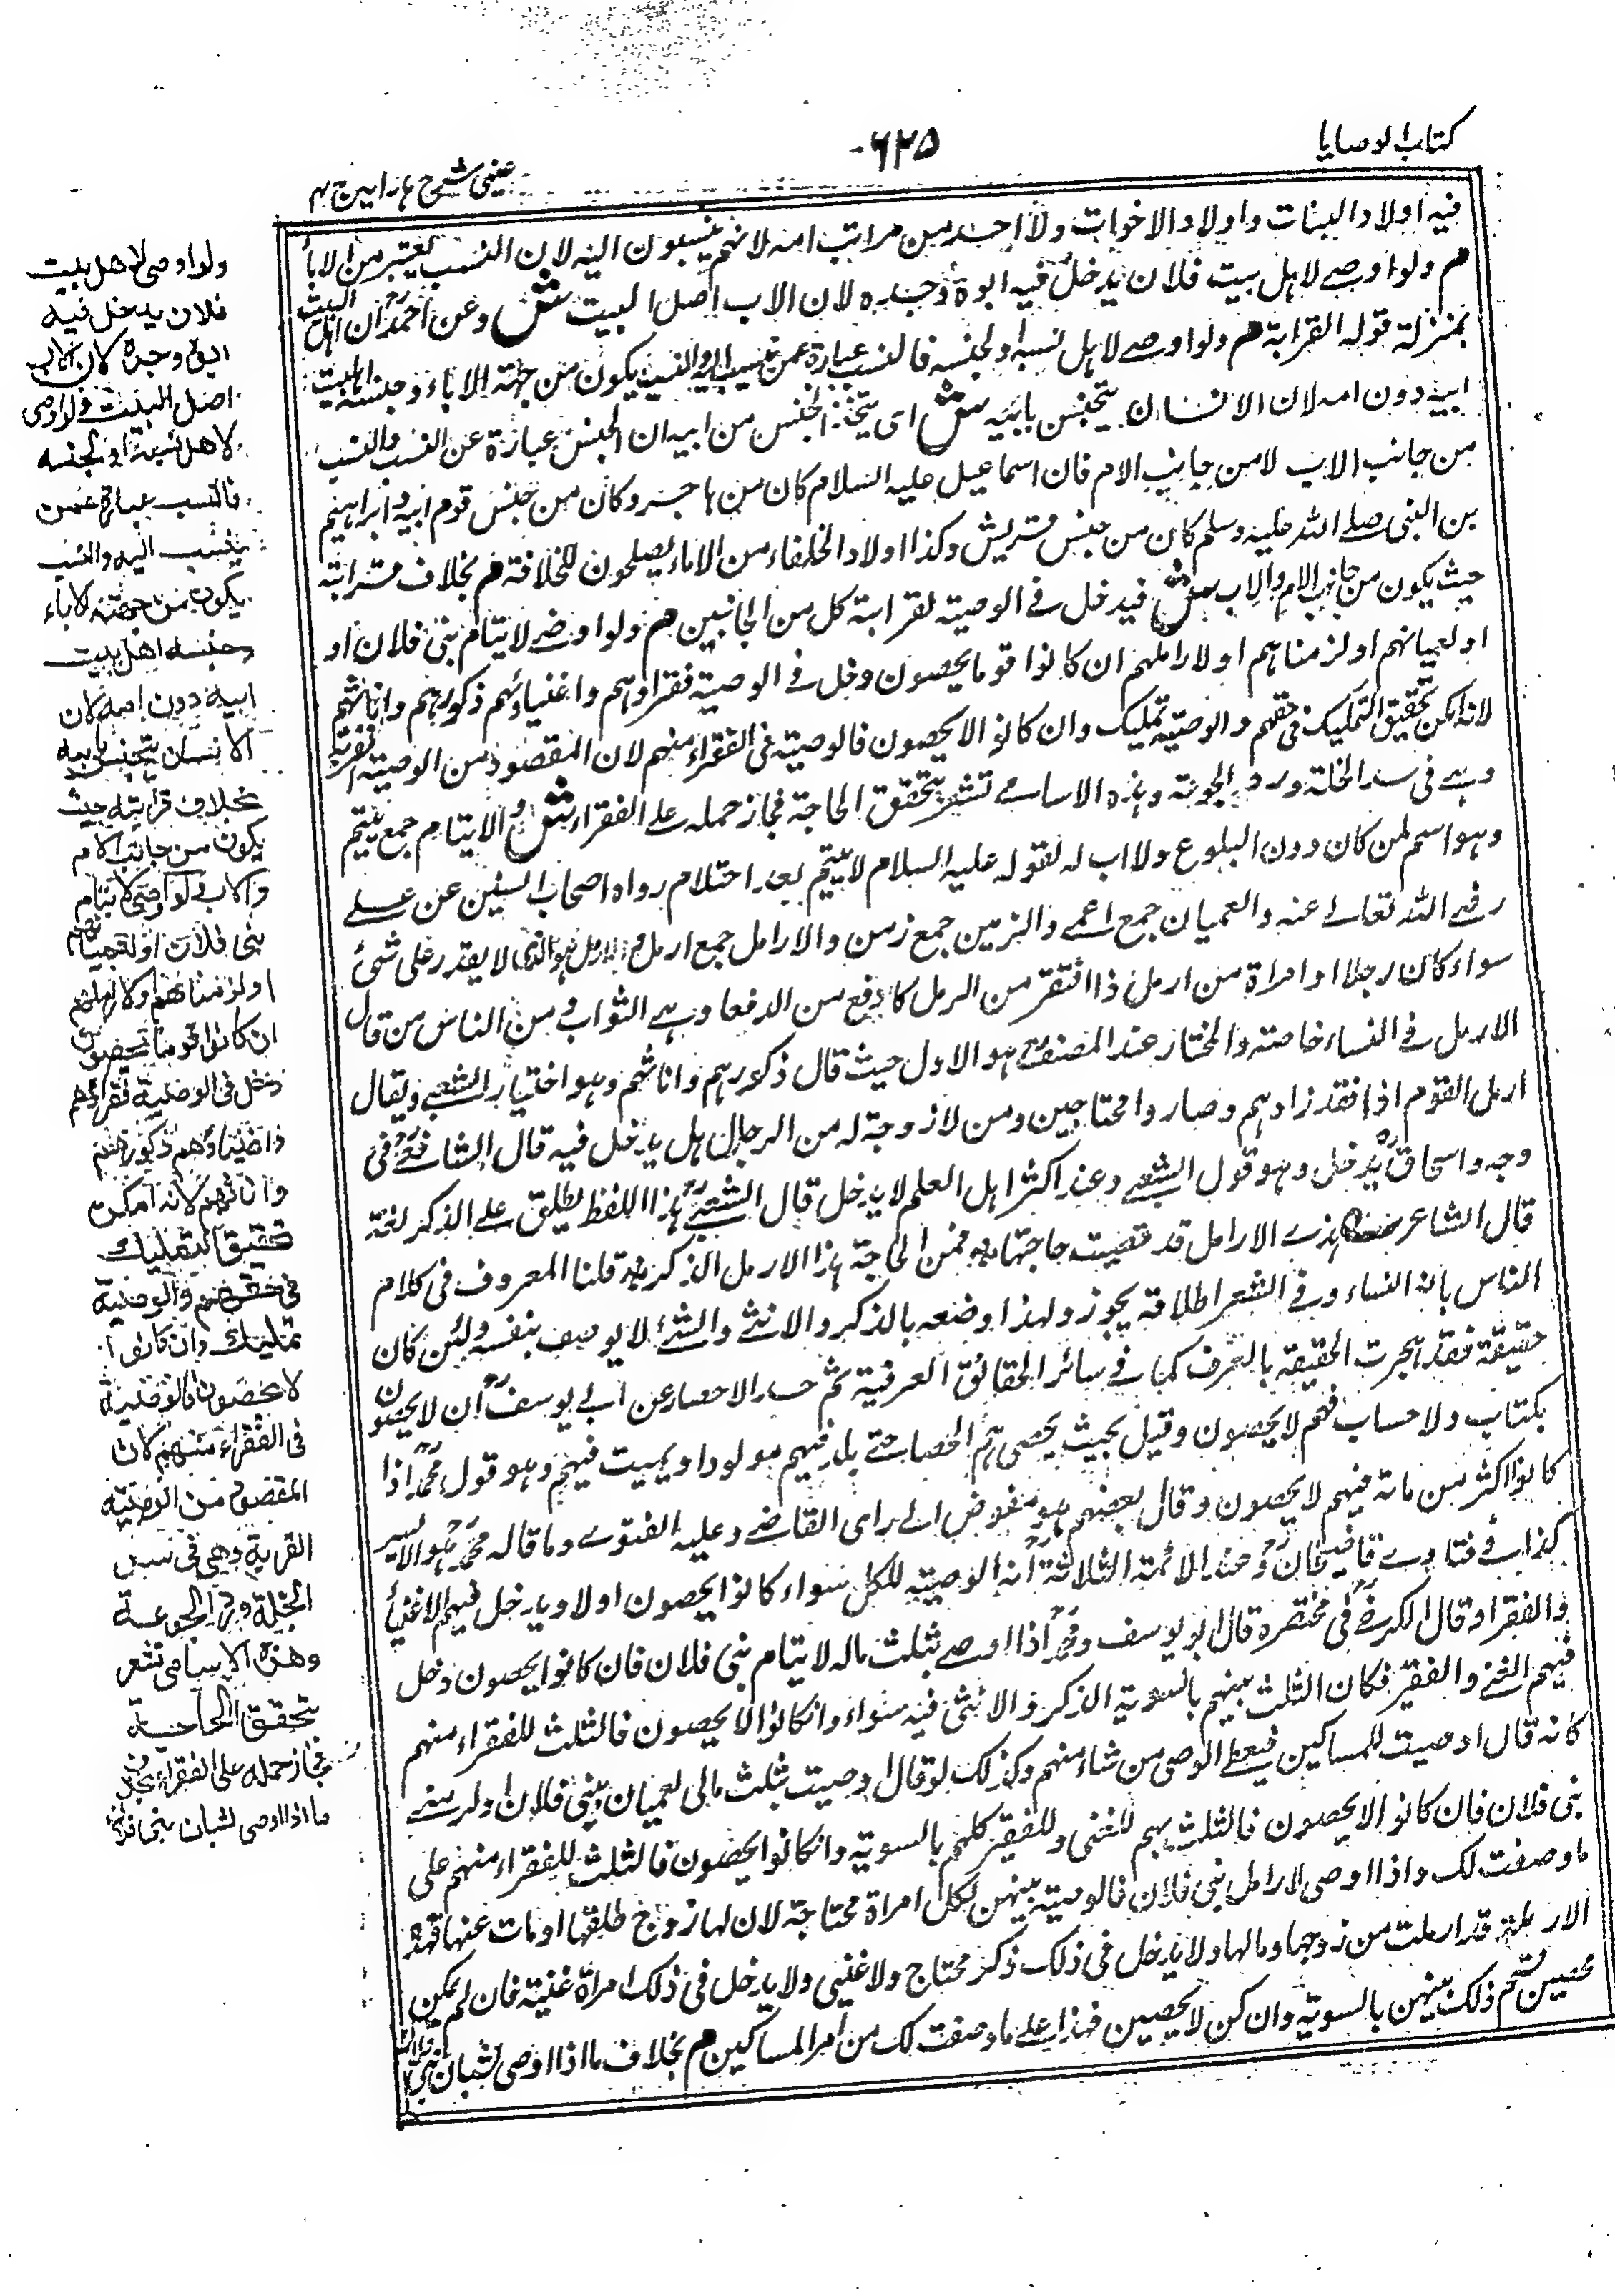 كتاب الوصايا
٦٢٥
عينى شرح هدايه ج ٤
فيه اولاد البنات واولاد الاخوات ولا احد من قرابة امه لانهم ينسبون اليه لان النسب يعتبر من الابا
م ولو اوصے لاہل بيت فلان يدخل فيه ابوه وجده لان الاب اصل البيت ش وعن احمدؒ ان اہل البيت
بمنزلة قوله القرابة م ولو اوصے لاہل نسبه او لجنسه فالنسب عبارة عمن ينسب اليه والنسب يكون من جہة الاباء وجنسه اہل بيت
ابيه دون امه لان الانسان يتجنس بابيه ش اى يتخذ الجنس من ابيه ان الجنس عبارة عن النسب والنسب
من جانب الاب لا من جانب الام فان اسماعيل عليه السلام كان من ہاجر وكان من جنس قوم ابيه وابراہيم
بن النبى صلے الله عليه وسلم كان من جنس قريش وكذا اولاد الخلفاء من الاماء يصلحون للخلافة م بخلاف قرابته
حيث يكون من جانب الام والاب ش فيدخل فے الوصية لقرابة كل من الجانبين م ولو اوصے لايتام بنى فلان او
او لعميانہم او لزمناہم او لاراملہم ان كانوا قوما يحصون دخل فے الوصية فقراؤہم واغنياؤہم ذكورہم واناثہم
لانه امكن تحقيق التمليك فى حقہم والوصية تمليك وان كانوا لا يحصون فالوصية فى الفقراء منہم لان المقصود من الوصية القربة
وہے فى سد الخلة ورد الجوعة وہذه الاسامے تشعر بتحقق الحاجة فجاز حمله علے الفقراء ش والايتام جمع يتيم
وہو اسم لمن كان دون البلوغ ولا اب له لقوله عليه السلام لا يتيم بعد احتلام رواه اصحاب السنن عن علے
رضے الله تعالے عنه والعميان جمع اعمے والزمين جمع زمن والارامل جمع ارمل والارمل ہو الذى لا يقدر على شئ
سواء كان رجلا او امراة من ارمل اذا افتقر من الرمل كا دقع من الدقعا وہے التراب ومن الناس من قال
الارمل فے النساء خاصة والمختار عند المصنفؒ ہو الاول حيث قال ذكورہم واناثہم وہو اختيار الشعبے ويقال
ارمل القوم اذا فقد زادہم وصاروا محتاجين ومن لا زوجة له من الرجال ہل يدخل فيه قال الشافعےؒ فى
وجه واسحاقؒ يدخل وہو قول الشعبے وعند اكثر اہل العلم لا يدخل قال الشعبےؒ ہذا اللفظ يطلق علے الذكر لغة
قال الشاعر ہذے الارامل قد قضيت حاجتہا ؎ فمن لحاجة ہذا الارمل الذكر ؎ قلنا المعروف فى كلام
الناس بانه النساء وفے الشعر اطلاقه يجوز ولہذا وضعه بالذكر والانثے والشئ لا يوصف بنفسه ولئن كان
حقيقة فقد ہجرت الحقيقة بالعرف كما فے سائر الحقائق العرفية ثم حد الاحصار عن ابے يوسفؒ ان لا يحصون
بكتاب ولا حساب فہم لا يحصون وقيل بحيث يحصى ہم المحصا حتے يلد فيہم مولود او يميت فيہم وہو قول محمدؒ اذا
كانوا اكثر من مائة فيہم لا يحصون وقال بعضہم ہو مفوض الے راى القاضے وعليه الفتوے وما قاله محمدؒ ہو الايسر
كذا فے فتاوے قاضيخانؒ وعند الائمة الثلاثةؒ انه الوصية للكل سواء كانوا يحصون او لا ويدخل فيہم الاغنيا
والفقرا وقال الكرخےؒ فى مختصره قال ابو يوسف ومحمدؒ اذا اوصے بثلث ماله لايتام بنى فلان فان كانوا يحصون دخل
فيہم الغنے والفقير فكان الثلث بينہم بالسوية الذكر والانثى فيه سواء وان كانوا لا يحصون فالثلث للفقراء منہم
كانه قال اوصيت للمساكين فيعطے الوصى من شاء منہم وكذلك لو قال اوصيت بثلث مالى لعميان بنى فلان او لزمنے
بنى فلان فان كانوا لا يحصون فالثلث بہم للغنى وللفقير كلہم بالسوية وان كانوا يحصون فالثلث للفقراء منہم على
ما وصفت لك واذا اوصى لارامل بنى فلان فالوصية بينہن لكل امراة محتاجة لان لہا زوج طلقہا او مات عنہا فہذه
الارملة قد ارملت من زوجہا ومالہا ولا يدخل فى ذلك ذكر محتاج ولا غنى ولا يدخل فى ذلك امراة غنية فان لم يكن
محصين قسم ذلك بينہن بالسوية وان كن لا يحصين فہذا علے ما وصفت لك من امر المساكين م بخلاف ما اذا اوصى لشبان بنى فلان
ولو اوصى لاهل بيت
فلان يدخل فيه
ابوه وجده لان الاب
اصل البيت ولو اوصى
لاهل نسبه او لجنسه
فالنسب عبارة عمن
ينسب اليه والنسب
يكون من جهة الاباء
وجنسه اهل بيت
ابيه دون امه لان
الانسان يتجنس بابيه
بخلاف قرابته حيث
يكون من جانب الام
والاب ولو اوصى لايتام
بنى فلان او لعميانهم
او لزمناهم او لاراملهم
ان كانوا قوما يحصون
دخل فى الوصية فقراؤهم
واغنياؤهم ذكورهم
واناثهم لانه امكن
تحقيق التمليك
فى حقهم والوصية
تمليك وان كانوا
لا يحصون فالوصية
فى الفقراء منهم لان
المقصود من الوصية
القربة وهى فى سد
الخلة ورد الجوعة
وهذه الاسامى تشعر
بتحقق الحاجة
فجاز حمله على الفقراء بخلاف
ما اذا اوصى لشبان بنى فلان